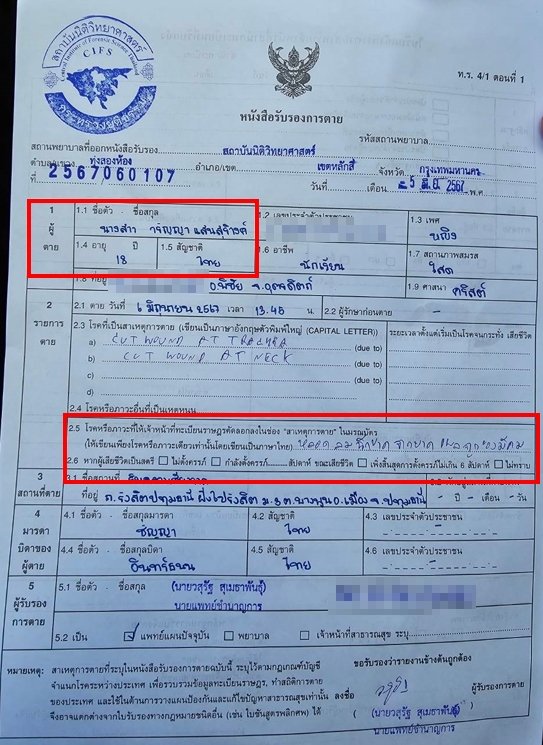 สถาบันนิติวิทยาศาสตร์
CIFS
Central Institute of Forensic Science Thailand
กระทรวงยุติธรรม
ท.ร. 4/1 ตอนที่ 1
หนังสือรับรองการตาย
รหัสสถานพยาบาล
สถานพยาบาลที่ออกหนังสือรับรอง สถาบันนิติวิทยาศาสตร์
ตำบล/แขวง ทุ่งสองห้อง อำเภอ/เขต เขตหลักสี่ จังหวัด กรุงเทพมหานคร
ที่ 2567060107 วันที่ เดือน 5 2567 พ.ศ.
1 ผู้ตาย
1.1 ชื่อตัว - ชื่อสกุล
นางสาว
1.2 เลขประจำตัวประชาชน
1.3 เพศ
หญิง
1.4 อายุ ปี
18
1.5 สัญชาติ
ไทย
1.6 อาชีพ
นักเรียน
1.7 สถานภาพสมรส
โสด
1.8 ที่อยู่ อ.พิชัย จ.อุตรดิตถ์
1.9 ศาสนา คริสต์
2 รายการตาย
2.1 ตาย วันที่ 6 มิถุนายน 2567 เวลา 13.45 น.
2.2 ผู้รักษาก่อนตาย -
2.3 โรคที่เป็นสาเหตุการตาย (เขียนเป็นภาษาอังกฤษตัวพิมพ์ใหญ่ (CAPITAL LETTER))
ระยะเวลาตั้งแต่เริ่มเป็นโรคจนกระทั่ง เสียชีวิต
a) CUT WOUND AT TRACHEA (due to)
b) CUT WOUND AT NECK (due to)
c) (due to)
d)
2.4 โรคหรือภาวะอื่นที่เป็นเหตุหนุน
2.5 โรคหรือภาวะที่ให้เจ้าหน้าที่ทะเบียนราษฎรคัดลอกลงในช่อง "สาเหตุการตาย" ในมรณบัตร
(ให้เขียนเพียงโรคหรือภาวะเดียวเท่านั้นโดยเขียนเป็นภาษาไทย) หลอดลมฉีกขาดจากบาดแผลถูกของมีคม
2.6 หากผู้เสียชีวิตเป็นสตรี ไม่ตั้งครรภ์ กำลังตั้งครรภ์ สัปดาห์ ขณะเสียชีวิต เพิ่งสิ้นสุดการตั้งครรภ์ไม่เกิน 6 สัปดาห์ ไม่ทราบ
3 สถานที่ตาย
3.1 สถานที่
ที่อยู่ ถ.รังสิตปทุมธานี ฝั่งไปรังสิต อ.เมือง จ.ปทุมธานี - ปี - เดือน - วัน
4 มารดาบิดาของผู้ตาย
4.1 ชื่อตัว ชื่อสกุลมารดา
ชัญญา
4.2 สัญชาติ
ไทย
4.3 เลขประจำตัวประชาชน
-
4.4 ชื่อตัว ชื่อสกุลบิดา
4.5 สัญชาติ
ไทย
4.6 เลขประจำตัวประชาชน
-
5 ผู้รับรองการตาย
5.1 ชื่อตัว - ชื่อสกุล (นายวสุรัฐ สุเมธาพันธุ์)
นายแพทย์ชำนาญการ
5.2 เป็น แพทย์แผนปัจจุบัน พยาบาล เจ้าหน้าที่สาธารณสุข ระบุ
หมายเหตุ: สาเหตุการตายที่ระบุในหนังสือรับรองการตายฉบับนี้ ระบุไว้ตามกฎเกณฑ์บัญชี
จำแนกโรคระหว่างประเทศ เพื่อรวบรวมข้อมูลทะเบียนราษฎร, ทำสถิติการตาย
ของประเทศ และใช้ในด้านการวางแผนป้องกันและแก้ไขปัญหาสาธารณสุขเท่านั้น
จึงอาจแตกต่างจากใบรับรองทางกฎหมายชนิดอื่น (เช่น ใบชันสูตรพลิกศพ) ได้
ขอรับรองว่ารายงานข้างต้นถูกต้อง
ลงชื่อ ผู้รับรองการตาย
(นายวสุรัฐ สุเมธาพันธุ์)
นายแพทย์ชำนาญการ